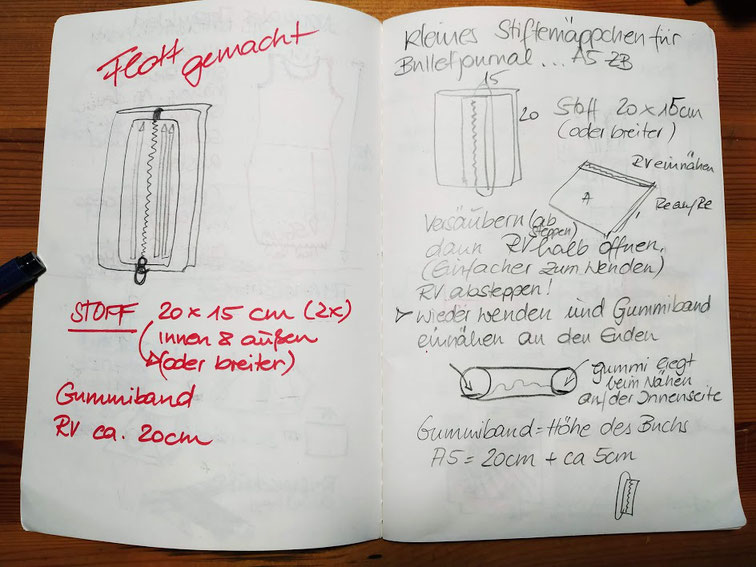 Flott gemacht
STOFF 20 x 15 cm (2x)
innen & außen
(oder breiter)
Gummiband
RV ca. 20cm
kleines Stiftemäppchen für
Bulletjournal... A5 ZB
15
20
Stoff 20 x 15cm
(oder breiter)
RV einnähen
A
Re auf Re
Versäubern (ab
steppen)
dann RV halb öffnen,
(Einfacher zum Wenden)
RV absteppen!
wieder wenden und Gummiband
einnähen an den Enden
gummi liegt
beim Nähen
auf der Innenseite
Gummiband = Höhe des Buchs
A5 = 20cm + ca 5cm